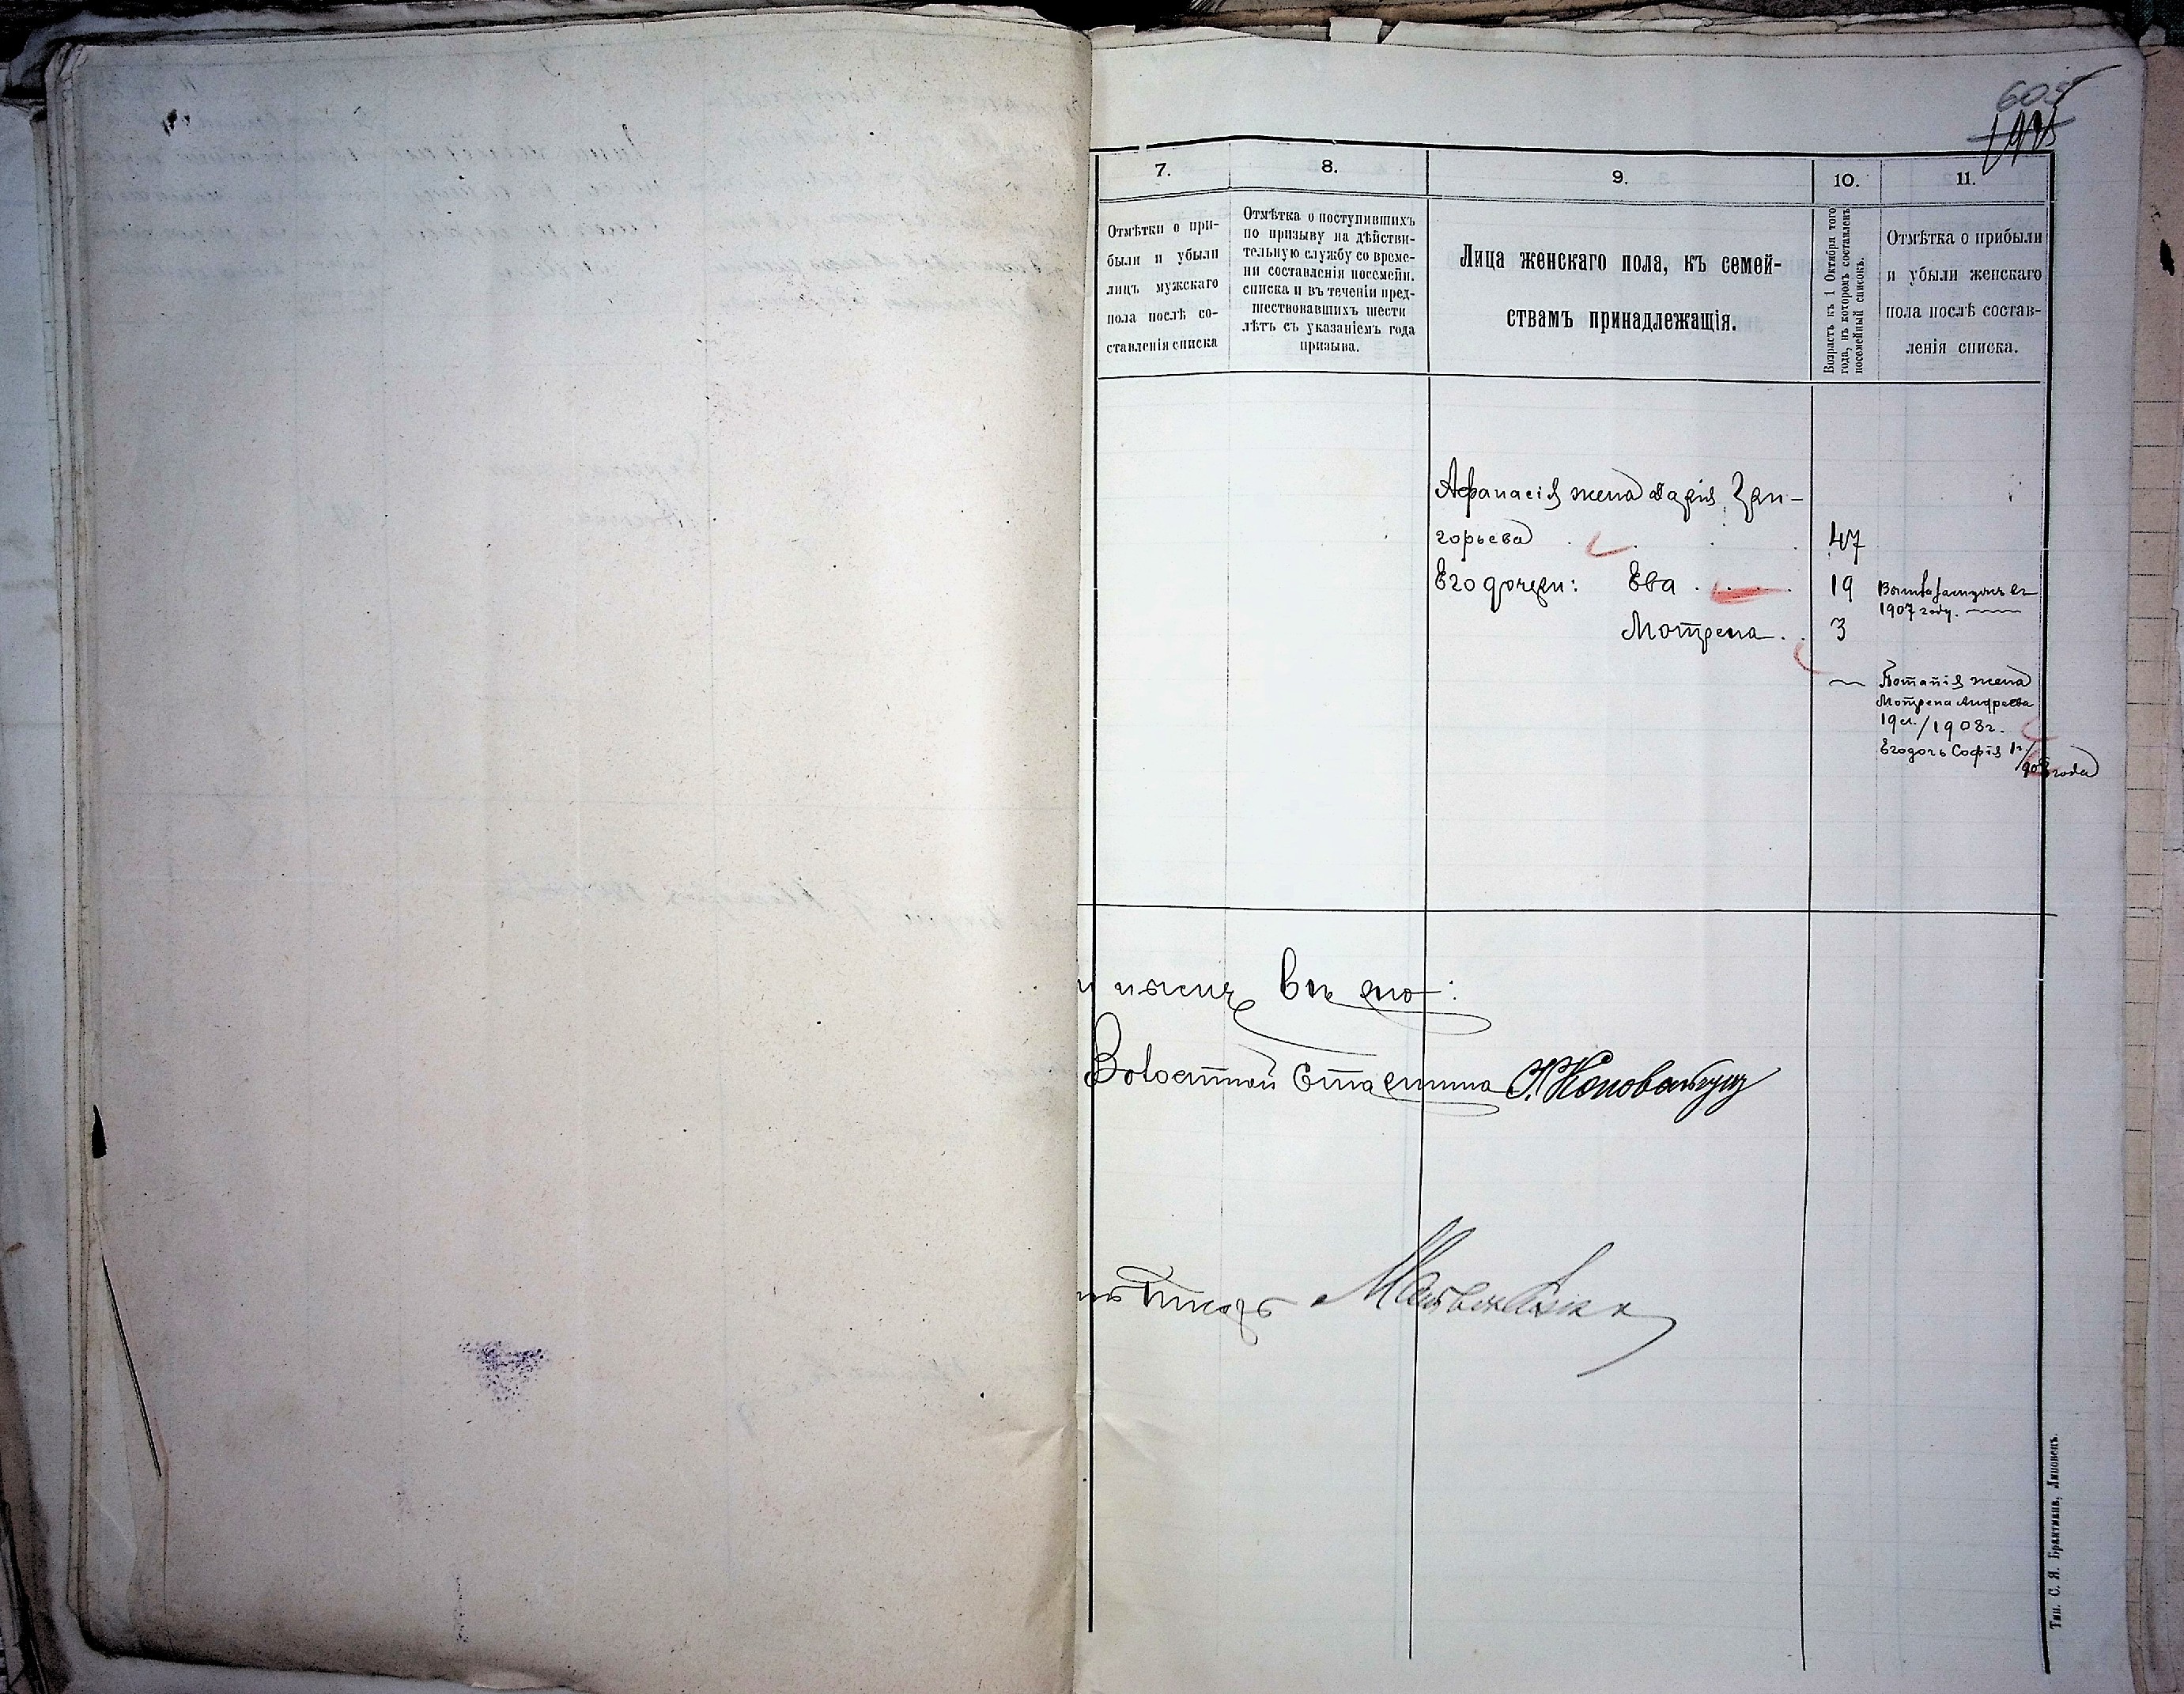 605
7.
8.
9.
10.
11.
Отмѣтки о при-
были и убыли
лицъ мужскаго
пола послѣ со-
ставленія списка
Отмѣтка о поступившихъ
по призыву на дѣйстви-
тельную службу со време-
ни составленія посемейн.
списка и въ теченіи пред-
шествовавшихъ шести
лѣтъ съ указаніемъ года
призыва.
Лица женскаго пола, къ семей-
ствамъ принадлежащія.
Возрастъ къ 1 Октября того
года, въ которомъ составленъ
посемейный списокъ.
Отмѣтка о прибыли
и убыли женскаго
пола послѣ состав-
ленія списка.
Афанасія жена Марія Гри-
горьева 47
Его дочери: Ева 19
Мотрена 3
Вышла замужъ въ
1907 году.
жена
Мотрена Андреева
19 л./1908 г.
Его дочь Софія 1 г./
908 года
вѣрно:
Волостной Старшина
Писарь
Тип. С. Я. Брахтмана, Липовецъ.